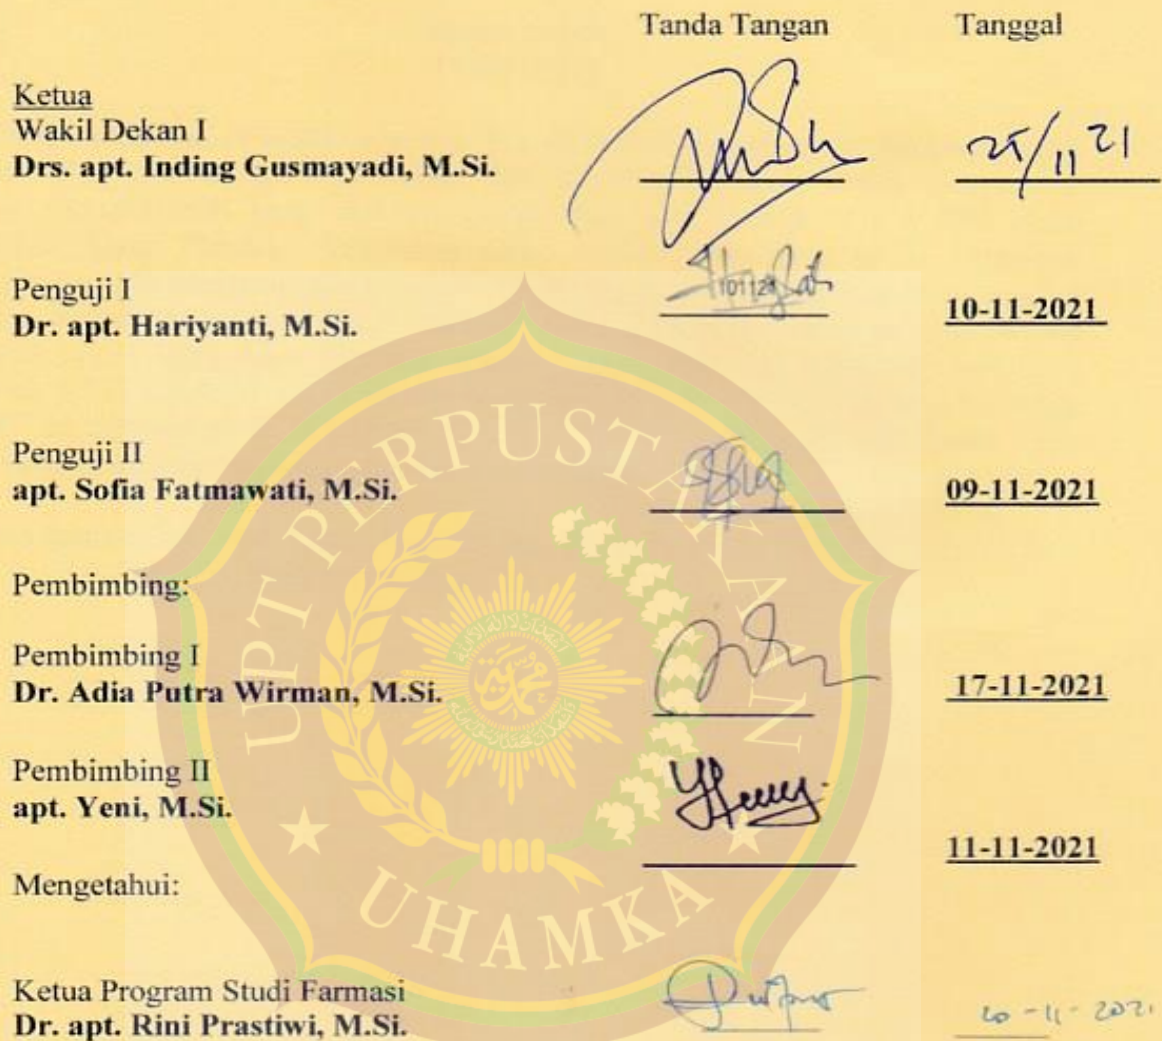 Tanda Tangan Tanggal
Ketua
Wakil Dekan I
Drs. apt. Inding Gusmayadi, M.Si. 25/11 21
Penguji I
Dr. apt. Hariyanti, M.Si. 101121 10-11-2021
Penguji II
apt. Sofia Fatmawati, M.Si. 09-11-2021
Pembimbing:
Pembimbing I
Dr. Adia Putra Wirman, M.Si. 17-11-2021
Pembimbing II
apt. Yeni, M.Si.
11-11-2021
Mengetahui:
Ketua Program Studi Farmasi
Dr. apt. Rini Prastiwi, M.Si. 20-11-2021
UPT PERPUSTAKAAN
UHAMKA